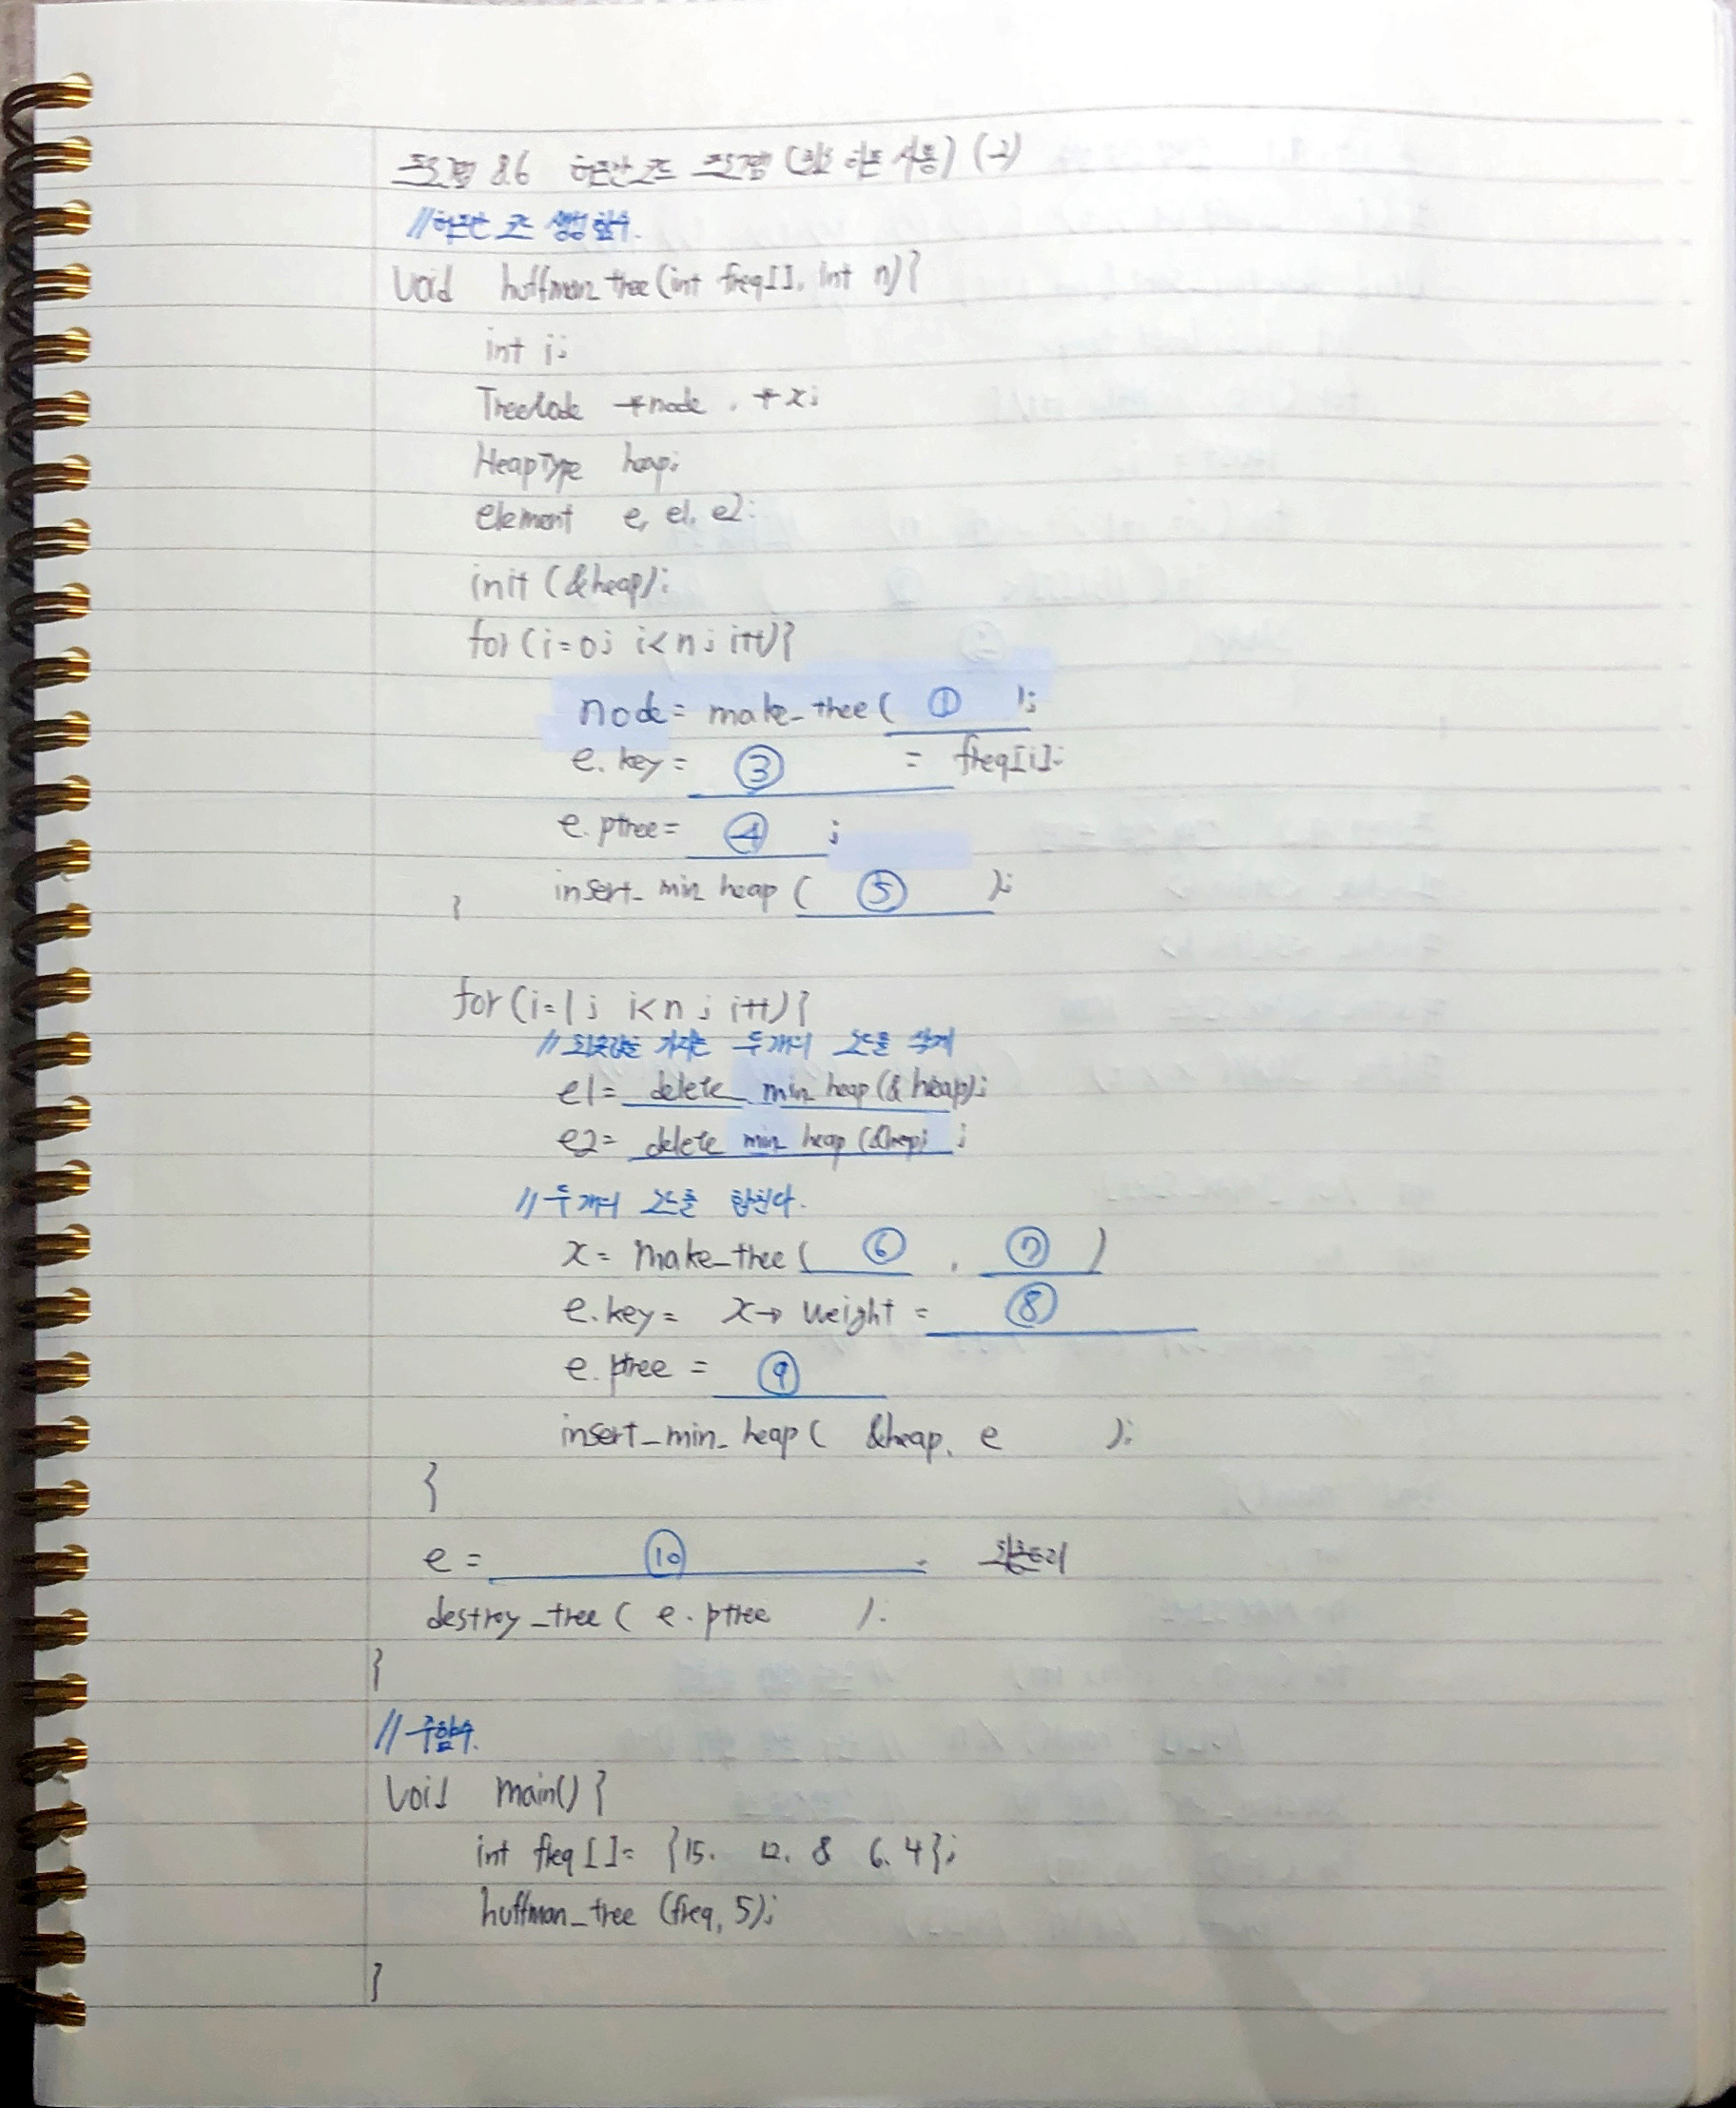 프로그램 8.6 허프만 코드 프로그램 (최소 히프 사용) (2)
//허프만 코드 생성 함수.
void huffman_tree(int freq[], int n){
int i;
TreeNode *node, *x;
HeapType heap;
element e, e1, e2;
init (&heap);
for (i=0; i<n; i++){
node= make_tree( ① );
e. key = ③ = freq[i];
e. ptree= ④ ;
insert_min_heap ( ⑤ );
}
for (i=1; i<n ; i++){
// 최솟값을 가지는 두개의 노드를 삭제
e1= delete_min_heap (& heap);
e2= delete_min_heap (&heap) ;
// 두 개의 노드를 합친다.
x= make_tree ( ⑥ , ⑦ )
e.key = x→ weight = ⑧
e. ptree = ⑨
insert_min_heap ( &heap, e );
}
e = ⑩ . 최종트리
destroy_tree ( e. ptree );
}
// 주함수.
void main() {
int freq []= {15. 12. 8 6. 4};
huffman_tree (freq, 5);
}